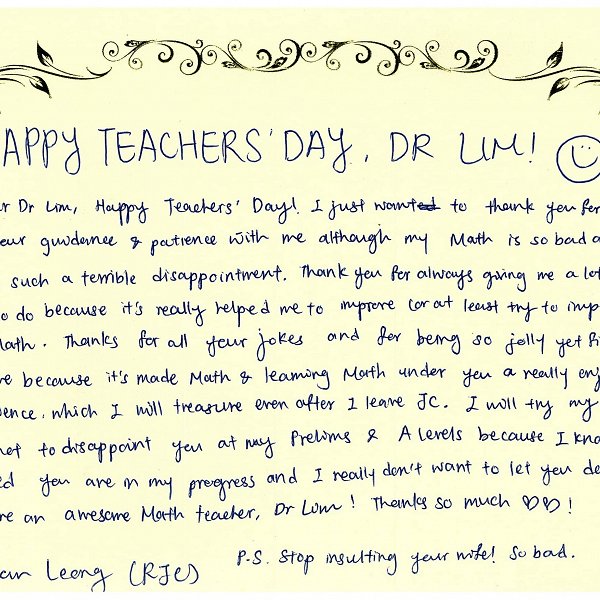 APPY TEACHERS' DAY, DR LIM!
Dr Lim, Happy Teachers' Day! I just want to thank you for
guidance & patience with me although my Math is so bad
such a terrible disappointment. Thank you for always giving me a lot
do because it's really helped me to improve (or at least try to imp
Math. Thanks for all your jokes and for being so jolly yet
because it's made Math & learning Math under you a really enj
ence, which I will treasure even after I leave JC. I will try my
not to disappoint you at my Prelims & A levels because I know
you are in my progress and I really don't want to let you do
re an awesome Math teacher, Dr Lim! Thanks so much ♡♡!
Leong (RJC)
P.S. Stop insulting your wife! So bad.